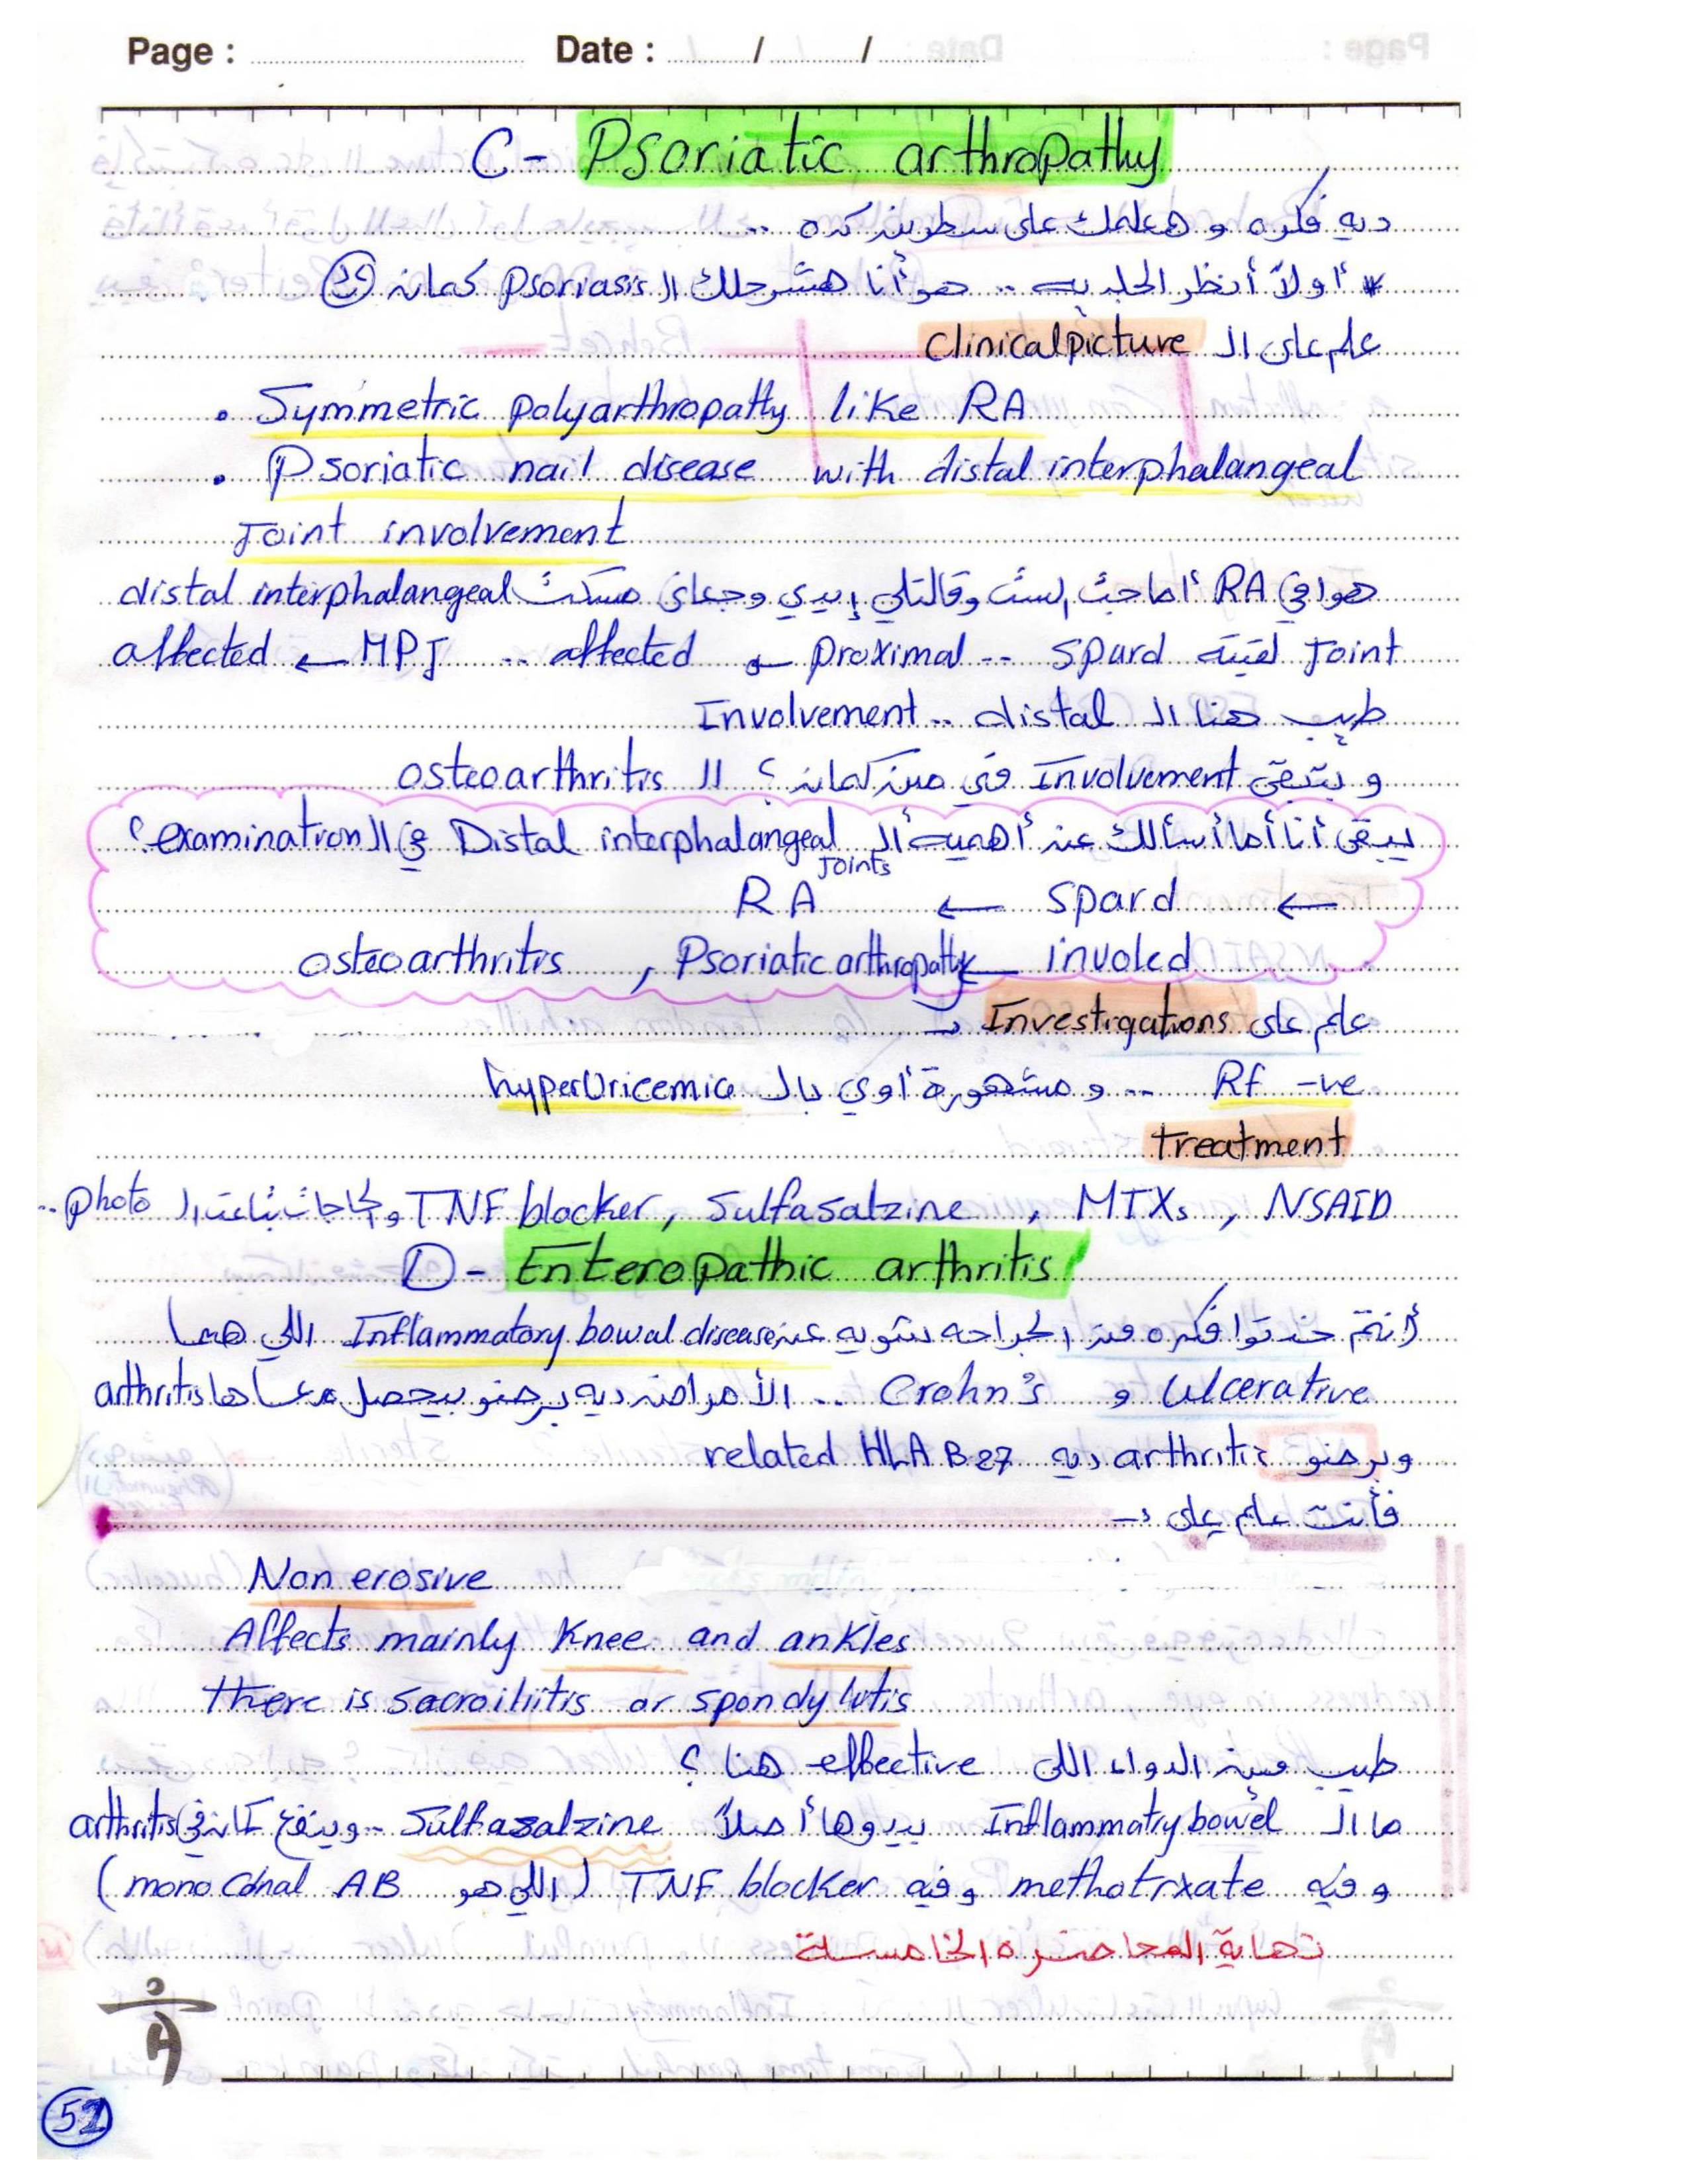 Page : Date : / /
C- Psoriatic arthropathy
ديه فكره و هعلمك على سطرين كده ..
* أولاً أنظر الجلديه .. هو أنا هشرحلك ال Psoriasis كمان
علم على ال Clinical picture
• Symmetric polyarthropathy like RA
• Psoriatic nail disease with distal interphalangeal
Joint involvement
هو في RA أما جت الست وقالتلي إيدي وجعاني مسكت distal interphalangeal
Joint لقيته spard .. proximal ← affected .. MPJ ← affected
طيب هنا ال distal .. Involvement
و بتبقى Involvement في مين كمان ؟ ال osteoarthritis
يبقى أنا أما أسألك عن أهمية ال Distal interphalangeal Joints في ال examination ؟
← spard ← RA
involed ← Psoriatic arthropathy , osteoarthritis
علم على Investigations
Rf -ve .. و مشهورة أوي بال hyperUricemic
treatment
NSAID , MTXs , Sulfasalzine , TNF blocker والحاجات بتاعت ال photo ..
D - Enteropathic arthritis
أنتم خدتوا فكره من الجراحه شويه عن Inflammatory bowal disease اللي هما
Ulcerative و Crohn's .. الأمراض ديه برضو بيحصل معاها arthritis
وبرضو arthritis ديه related HLA B27
فأنت علم على :-
Non erosive
Affects mainly Knee and ankles
there is sacroiliitis or spondylitis
طيب مين الدواء اللي effective هنا ؟
ما ال Inflammatry bowel بيدوها أصلاً Sulfasalzine .. وينفع كمان في arthritis
و فيه methotrxate وفيه TNF blocker (اللي هو mono conal AB)
نهاية المحاضره الخامسة
52